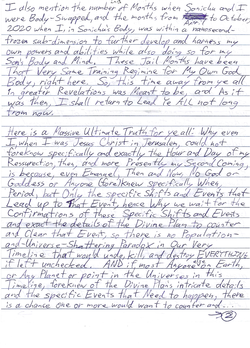 I also mention our past Months when Sonichu and I
were Body-Swapped, and the month from to October,
2020 when I, in Sonichu's Body, was within a
frozen sub-dimension to further develop and harness my
own powers and abilities while also doing so for my
Son's Body and Mind. These Jail Months have been
That Very Same Training Regime for My Own God
Body, right here. So, this time away from ye all
in greater Revelations was Meant to be, and As it
was then, I shall return to Lead Ye ALL not long
from now.
Here is a Massive Ultimate Truth for ye all: Why even
I, when I was Jesus Christ in Jerusalem, could not
foreknow specifically and exactly the Hour and Day of my
Resurrection then, and here Presently my Second Coming,
is because, even Emanuel, Then and Now, No God or
Goddess or Anyone Foreknew Specifically When,
Period, but Only the specific Shifts and Events that
Lead up to That Event, hence Why We wait for the
Confirmations of These Specific Shifts and Events
and exact the details of the Divine Plan to counter
and Clear that Event, so there is no Population-
and-Universe-Shattering Paradox in Our Very
Timeline that would undo, kill and destroy EVERYTHING
if left unchecked. AND if most Anyone on Earth,
or Any Planet or point in the Universes in this
Timeline, foreknew of the Divine Plan's intricate details
and the specific Events that Need to happen, there
is a chance one or more would want to counter and...
→②